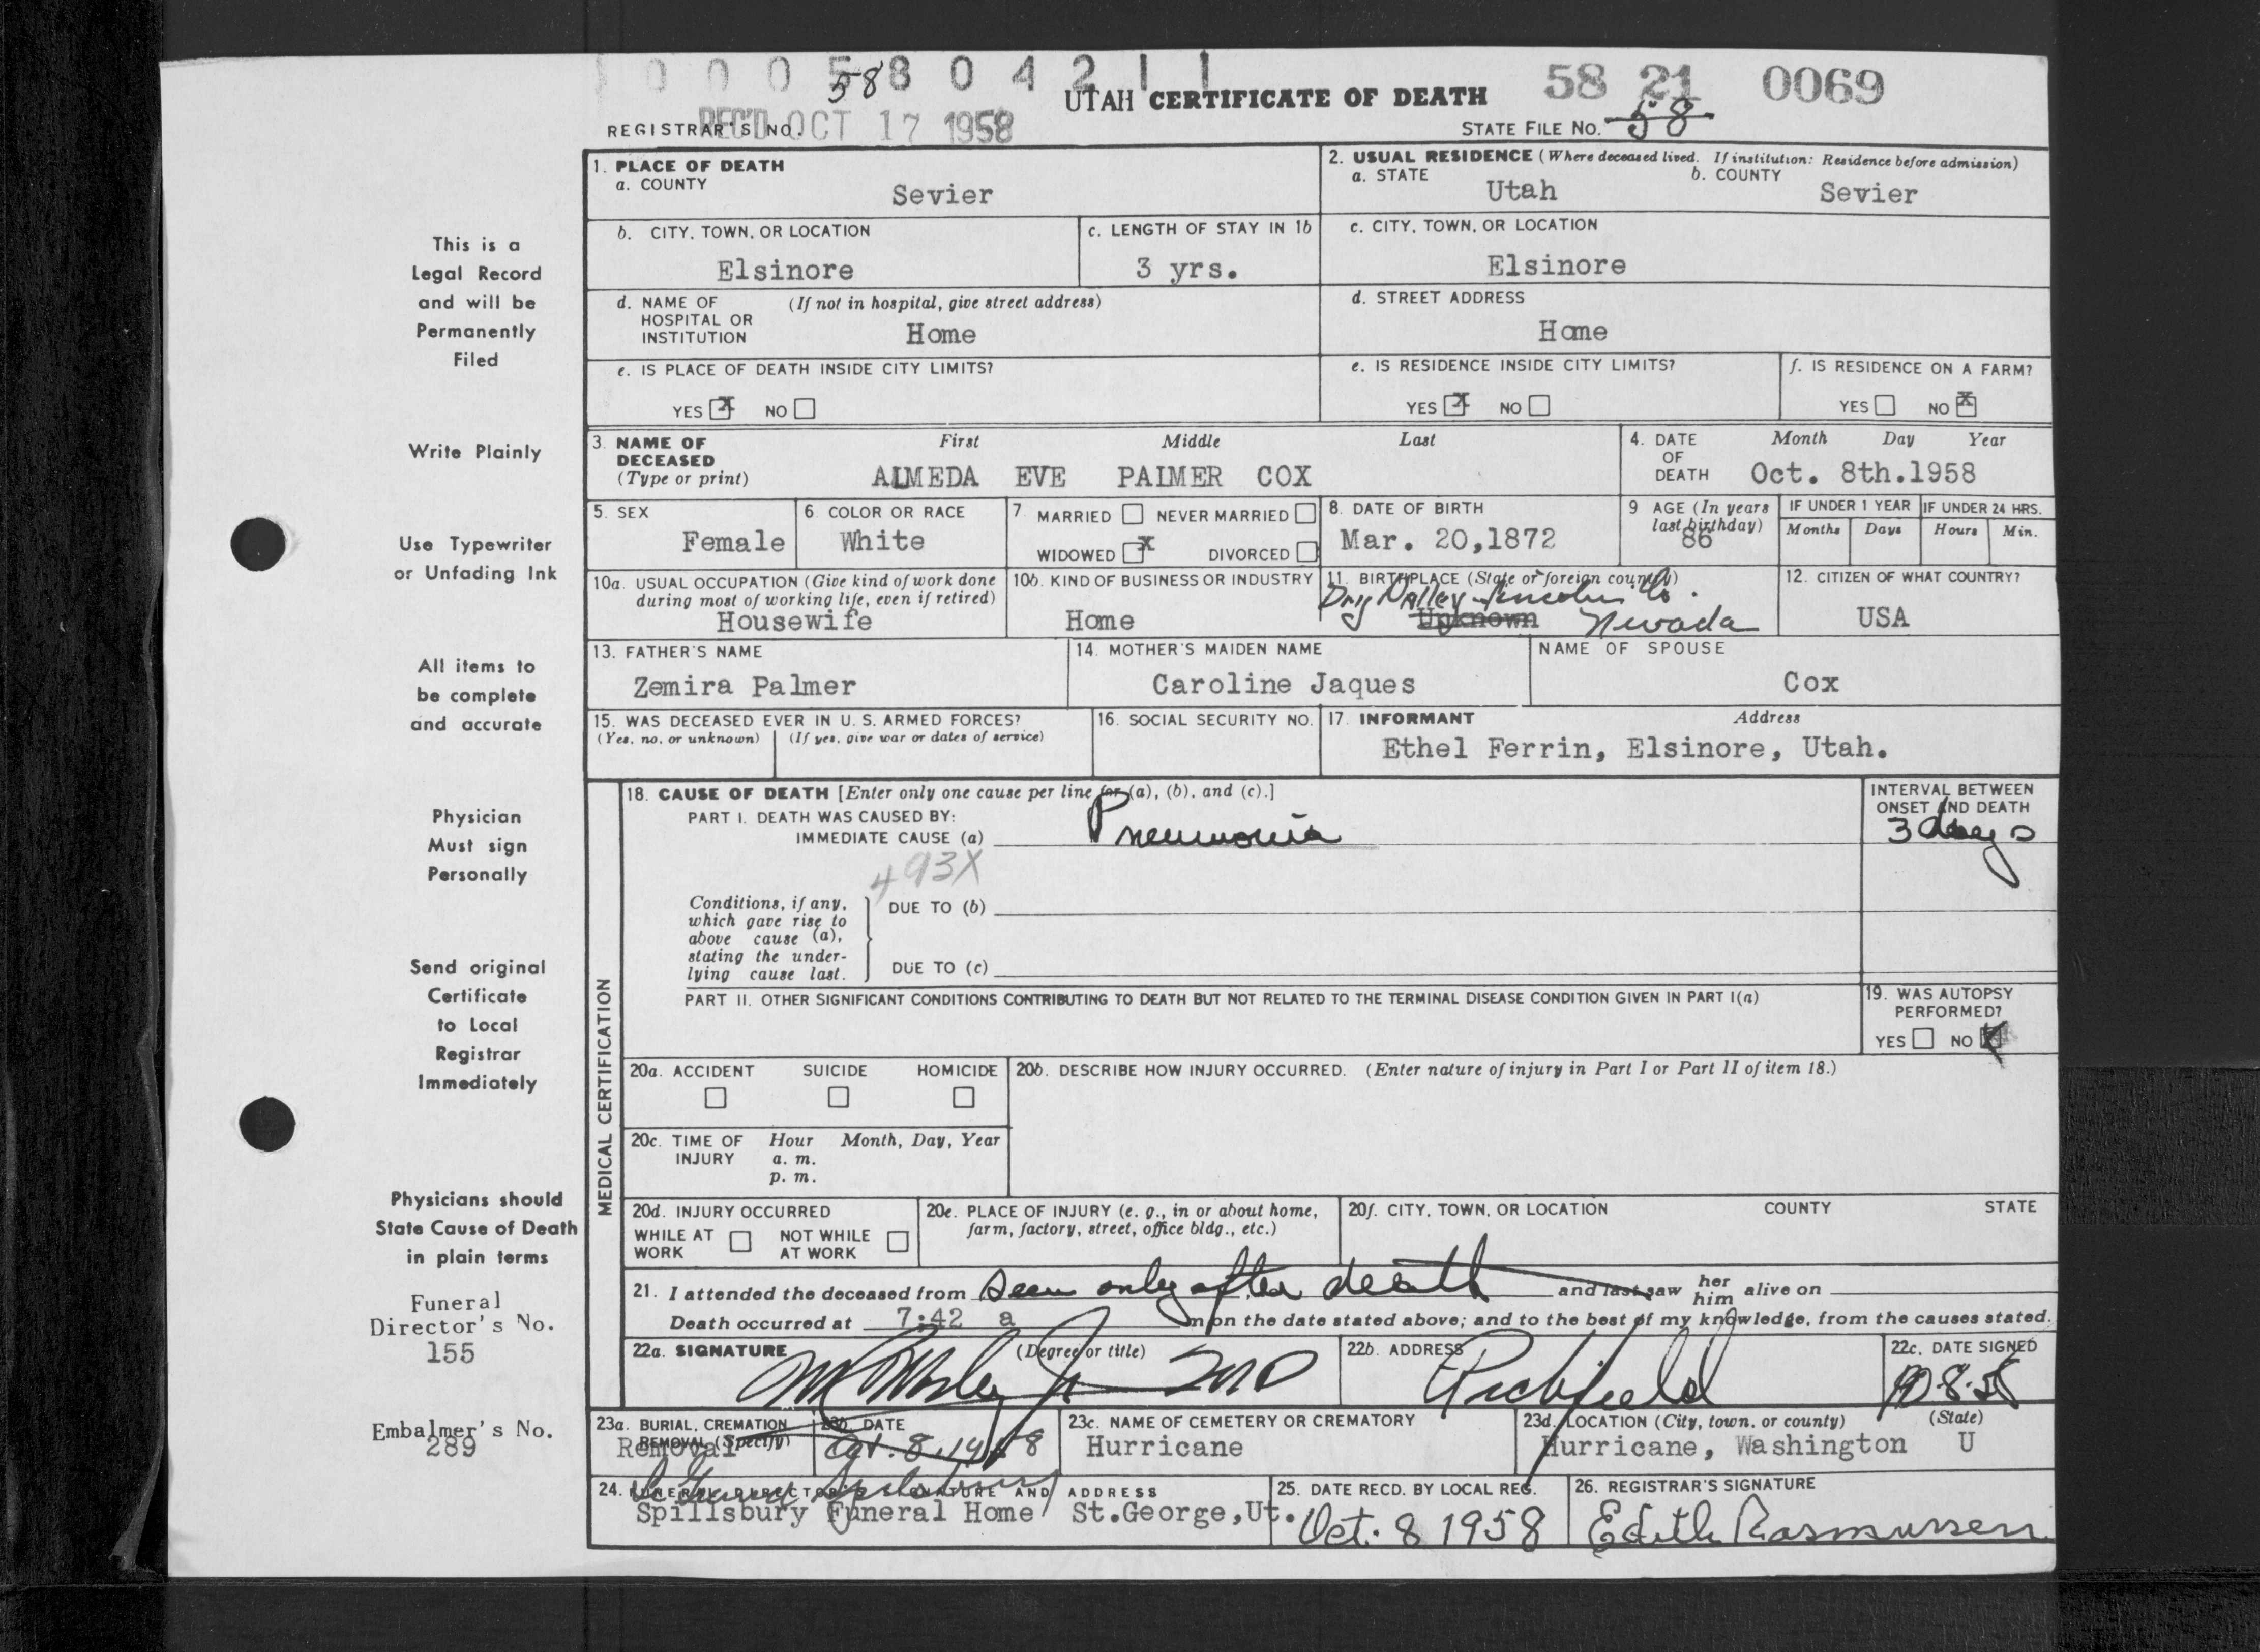 0 0 0 5 8 0 4 2 1 1
58
UTAH CERTIFICATE OF DEATH
58 21 0069
REGISTRAR'S NO.
REC'D OCT 17 1958
STATE FILE NO. 58
This is a
Legal Record
and will be
Permanently
Filed
Write Plainly
Use Typewriter
or Unfading Ink
All items to
be complete
and accurate
Physician
Must sign
Personally
Send original
Certificate
to Local
Registrar
Immediately
Physicians should
State Cause of Death
in plain terms
Funeral
Director's No.
155
Embalmer's No.
289
1. PLACE OF DEATH
a. COUNTY
Sevier
2. USUAL RESIDENCE (Where deceased lived. If institution: Residence before admission)
a. STATE
Utah
b. COUNTY
Sevier
b. CITY, TOWN, OR LOCATION
Elsinore
c. LENGTH OF STAY IN 1b
3 yrs.
c. CITY, TOWN, OR LOCATION
Elsinore
d. NAME OF (If not in hospital, give street address)
HOSPITAL OR
INSTITUTION
Home
d. STREET ADDRESS
Home
e. IS PLACE OF DEATH INSIDE CITY LIMITS?
YES X NO
e. IS RESIDENCE INSIDE CITY LIMITS?
YES X NO
f. IS RESIDENCE ON A FARM?
YES NO X
3. NAME OF
DECEASED
(Type or print)
First Middle Last
ALMEDA EVE PALMER COX
4. DATE
OF
DEATH
Month Day Year
Oct. 8th.1958
5. SEX
Female
6. COLOR OR RACE
White
7. MARRIED NEVER MARRIED
WIDOWED X DIVORCED
8. DATE OF BIRTH
Mar. 20,1872
9 AGE (In years
last birthday)
86
IF UNDER 1 YEAR
Months Days
IF UNDER 24 HRS.
Hours Min.
10a. USUAL OCCUPATION (Give kind of work done
during most of working life, even if retired)
Housewife
10b. KIND OF BUSINESS OR INDUSTRY
Home
11. BIRTHPLACE (State or foreign country)
Dry Valley Lincoln Co.
Unknown Nevada
12. CITIZEN OF WHAT COUNTRY?
USA
13. FATHER'S NAME
Zemira Palmer
14. MOTHER'S MAIDEN NAME
Caroline Jaques
NAME OF SPOUSE
Cox
15. WAS DECEASED EVER IN U. S. ARMED FORCES?
(Yes, no, or unknown) (If yes, give war or dates of service)
16. SOCIAL SECURITY NO.
17. INFORMANT Address
Ethel Ferrin, Elsinore, Utah.
MEDICAL CERTIFICATION
18. CAUSE OF DEATH [Enter only one cause per line for (a), (b), and (c).]
PART I. DEATH WAS CAUSED BY:
IMMEDIATE CAUSE (a) Pneumonia
INTERVAL BETWEEN
ONSET AND DEATH
3 days
493X
Conditions, if any,
which gave rise to
above cause (a),
stating the under-
lying cause last.
DUE TO (b)
DUE TO (c)
PART II. OTHER SIGNIFICANT CONDITIONS CONTRIBUTING TO DEATH BUT NOT RELATED TO THE TERMINAL DISEASE CONDITION GIVEN IN PART I(a)
19. WAS AUTOPSY
PERFORMED?
YES NO X
20a. ACCIDENT SUICIDE HOMICIDE
20b. DESCRIBE HOW INJURY OCCURRED. (Enter nature of injury in Part I or Part II of item 18.)
20c. TIME OF Hour Month, Day, Year
INJURY a. m.
p. m.
20d. INJURY OCCURRED
WHILE AT NOT WHILE
WORK AT WORK
20e. PLACE OF INJURY (e. g., in or about home,
farm, factory, street, office bldg., etc.)
20f. CITY, TOWN, OR LOCATION COUNTY STATE
21. I attended the deceased from Seen only after death and last saw her him alive on
Death occurred at 7:42 a m on the date stated above; and to the best of my knowledge, from the causes stated.
22a. SIGNATURE (Degree or title)
MD
22b. ADDRESS
Richfield
22c. DATE SIGNED
10-8-58
23a. BURIAL, CREMATION
REMOVAL (Specify)
Removal
23b. DATE
Oct. 8, 1958
23c. NAME OF CEMETERY OR CREMATORY
Hurricane
23d. LOCATION (City, town, or county) (State)
Hurricane, Washington U
24. FUNERAL DIRECTOR'S SIGNATURE AND ADDRESS
Spilsbury
Spillsbury Funeral Home St.George,Ut.
25. DATE RECD. BY LOCAL REG.
Oct. 8 1958
26. REGISTRAR'S SIGNATURE
Edith Rasmussen